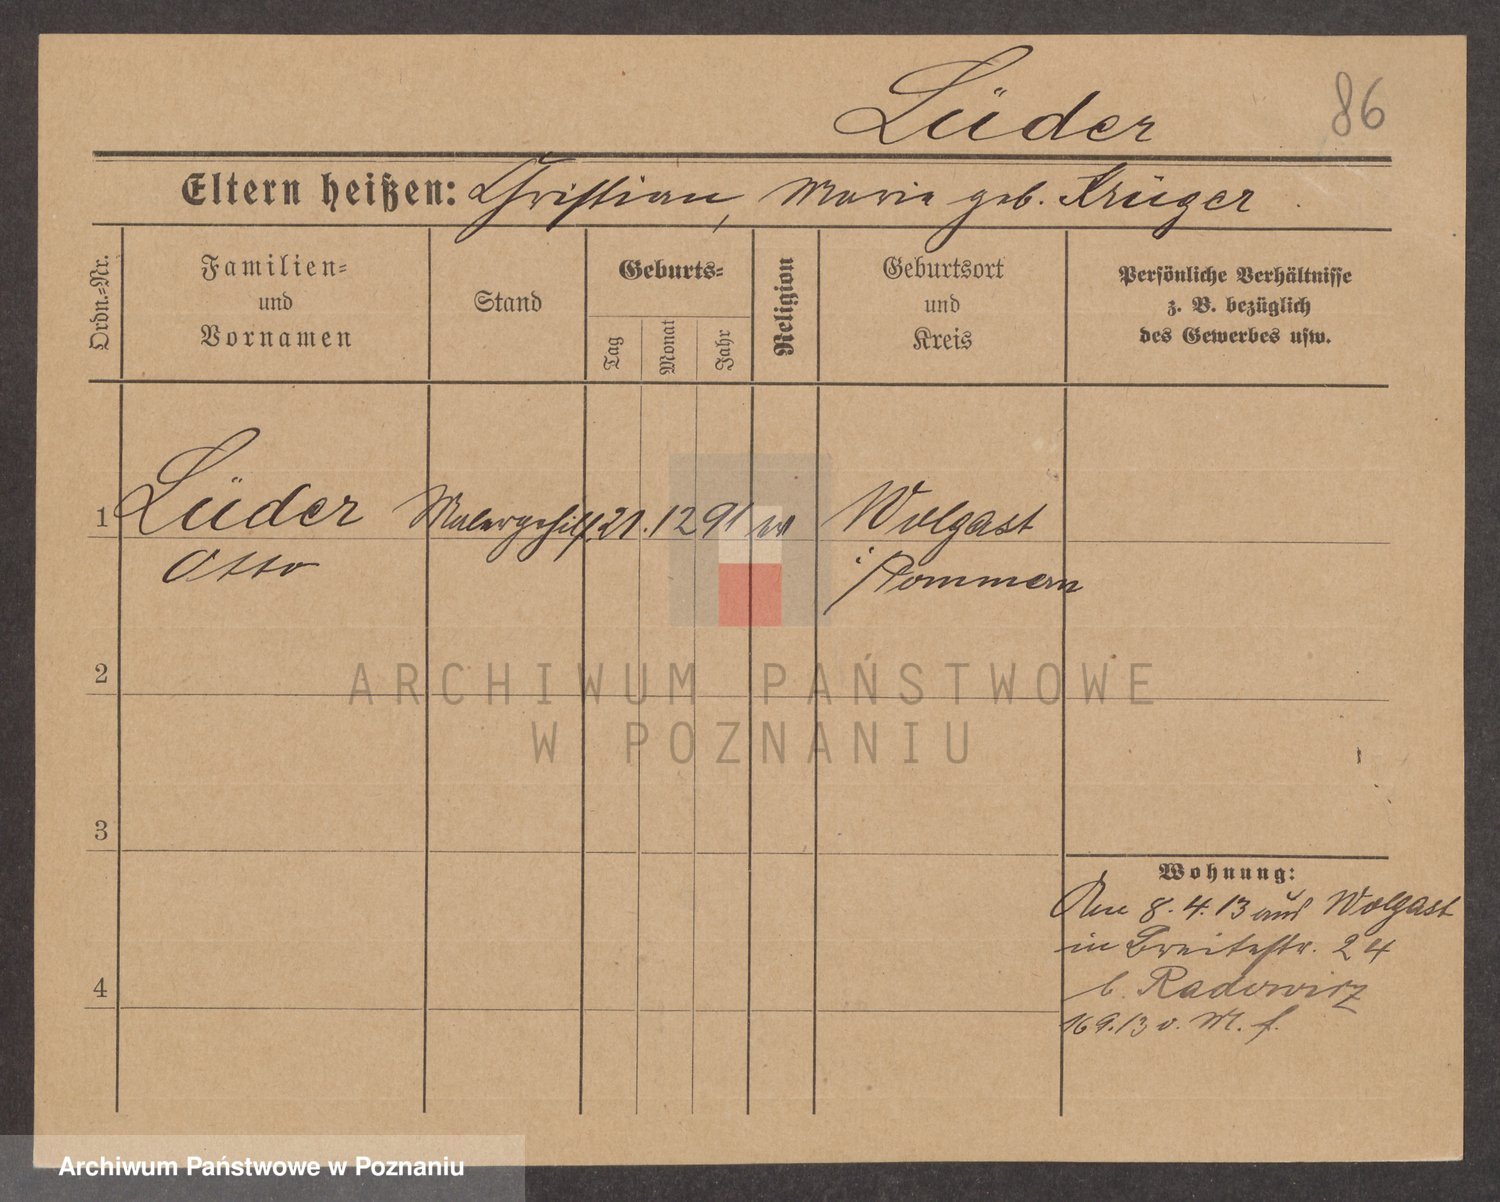 Lüder
86
Eltern heißen: Christian, Marie geb. Krüger
Ordn.-Nr.
Familien-
und
Vornamen
Stand
Geburts-
Tag
Monat
Jahr
Religion
Geburtsort
und
Kreis
Persönliche Verhältnisse
z. B. bezüglich
des Gewerbes usw.
1 Lüder Malergehilf. 21. 12 91 ev Wolgast
Otto i/Pommern
ARCHIWUM PAŃSTWOWE
W POZNANIU
2
3
4
Wohnung:
Am 8.4.13 aus Wolgast
in Breitestr. 24
b. Radowicz
16 9.13 v. M. f.
Archiwum Państwowe w Poznaniu